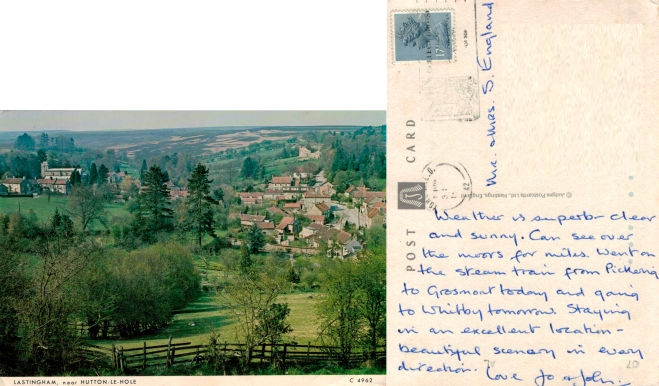 LASTINGHAM, near HUTTON-LE-HOLE
C 4962
17
POST CARD
© Judges Postcards Ltd., Hastings, England
Mr. & Mrs. S. England
Weather is superb - clear
and sunny. Can see over
the moors for miles. Went on
the steam train from Pickering
to Grosmont today and going
to Whitby tomorrow. Staying
in an excellent location -
beautiful scenery in every
direction. Love Jo & John.